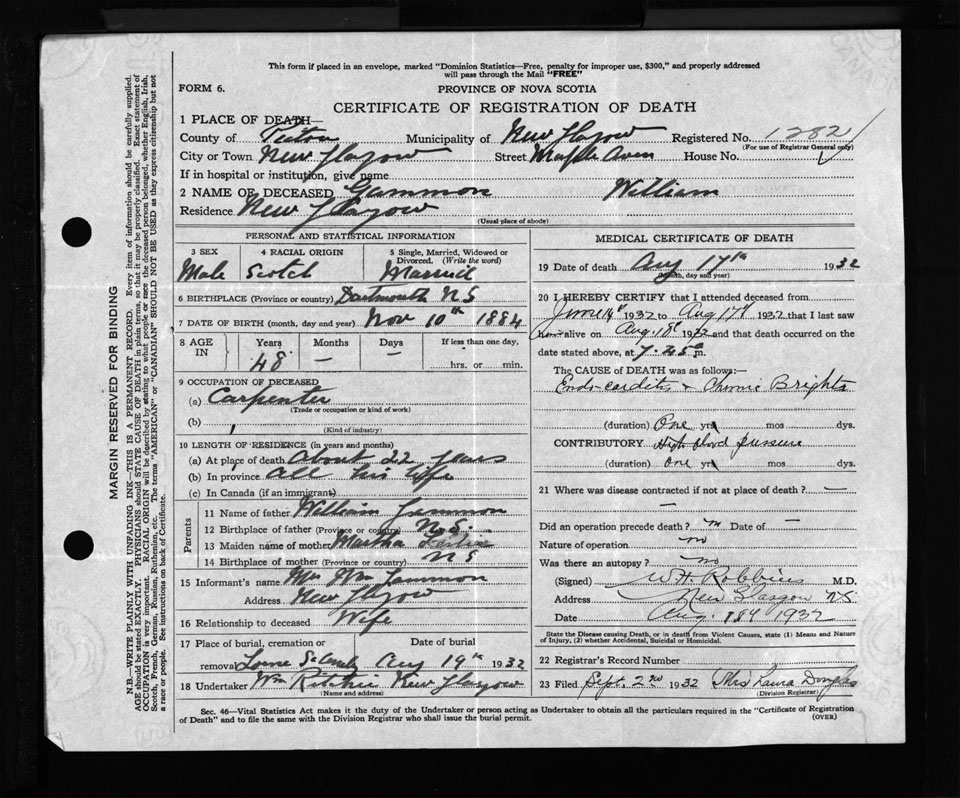 This form if placed in an envelope, marked "Dominion Statistics—Free, penalty for improper use, $300," and properly addressed
will pass through the Mail "FREE"
FORM 6.
PROVINCE OF NOVA SCOTIA
CERTIFICATE OF REGISTRATION OF DEATH
1 PLACE OF DEATH—
County of Pictou Municipality of New Glasgow Registered No. 1282
(For use of Registrar General only)
City or Town New Glasgow Street Maple Aven House No.
If in hospital or institution, give name
2 NAME OF DECEASED Gammon William
Residence New Glasgow
(Usual place of abode)
PERSONAL AND STATISTICAL INFORMATION
3 SEX 4 RACIAL ORIGIN 5 Single, Married, Widowed or
Divorced. (Write the word)
Male Scotch Married
6 BIRTHPLACE (Province or country) Dartmouth N S
7 DATE OF BIRTH (month, day and year) Nov 10th 1884
8 AGE IN Years Months Days If less than one day,
48 — — hrs. or min.
9 OCCUPATION OF DECEASED
(a) Carpenter
(Trade or occupation or kind of work)
(b)
(Kind of industry)
10 LENGTH OF RESIDENCE (in years and months)
(a) At place of death About 22 years
(b) In province all his life
(c) In Canada (if an immigrant)
Parents
11 Name of father William Gammon
12 Birthplace of father (Province or country) N.S.
13 Maiden name of mother Martha
14 Birthplace of mother (Province or country) N S
15 Informant's name Mrs Wm Gammon
Address New Glasgow
16 Relationship to deceased Wife
17 Place of burial, cremation or Date of burial
removal Lorne St Aug 19th 1932
18 Undertaker Wm Ritchie New Glasgow
(Name and address)
MEDICAL CERTIFICATE OF DEATH
19 Date of death Aug 17th 1932
(Month, day and year)
20 I HEREBY CERTIFY that I attended deceased from
June 14th 1932 to Aug 17th 1932 that I last saw
him alive on Aug 1932 and that death occurred on the
date stated above, at 7.45 m.
The CAUSE of DEATH was as follows:—
Endo-carditis + Chronic Brights
(duration) One yrs mos. dys.
CONTRIBUTORY High blood pressure
(duration) One yrs mos dys.
21 Where was disease contracted if not at place of death? —
—
Did an operation precede death? no Date of —
Nature of operation no
Was there an autopsy? no
(Signed) W.H. Robbins M.D.
Address New Glasgow N.S
Date Aug 1932
State the Disease causing Death, or in death from Violent Causes, state (1) Means and Nature
of Injury, (2) whether Accidental, Suicidal or Homicidal.
22 Registrar's Record Number
23 Filed Sept. 2nd 1932 Mrs Laura Douglas
(Division Registrar)
Sec. 46—Vital Statistics Act makes it the duty of the Undertaker or person acting as Undertaker to obtain all the particulars required in the "Certificate of Registration
of Death" and to file the same with the Division Registrar who shall issue the burial permit.
(OVER)
MARGIN RESERVED FOR BINDING
N.B.—WRITE PLAINLY WITH UNFADING INK—THIS IS A PERMANENT RECORD. Every item of information should be carefully supplied.
AGE should be stated EXACTLY. PHYSICIANS should STATE CAUSE OF DEATH in plain terms, so that it may be properly classified. Exact statement of
OCCUPATION is very important. RACIAL ORIGIN will be described by stating to what people or race the deceased person belonged, whether English, Irish,
Scotch, French, German, Russian, Ruthenian, etc. The terms "AMERICAN" or "CANADIAN" SHOULD NOT BE USED as they express citizenship but not
a race or people. See instructions on back of Certificate.